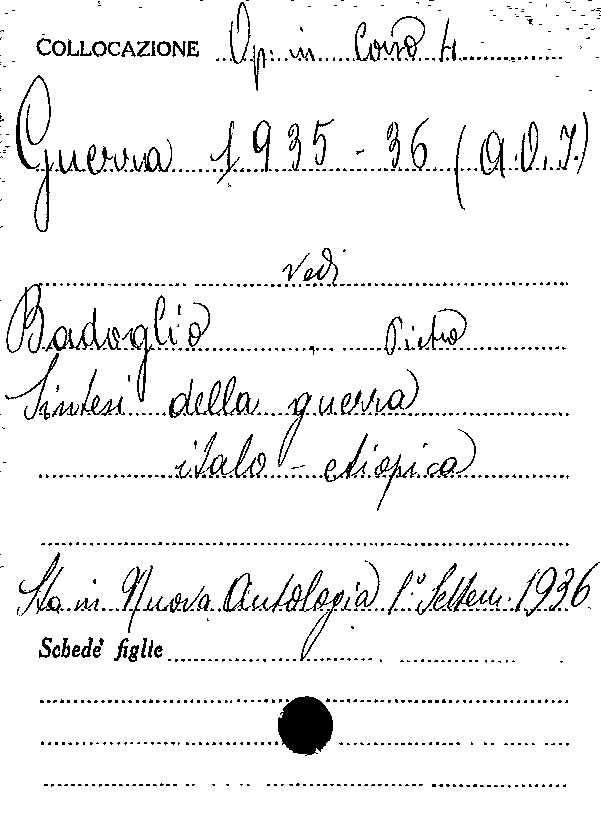 COLLOCAZIONE Op. in Corso 4
Guerra 1935-36 (A.O.I.)
vedi
Badoglio, Pietro
Sintesi della guerra
italo-etiopica
Sta in Nuova Antologia 1° Settem. 1936
Schede figlie